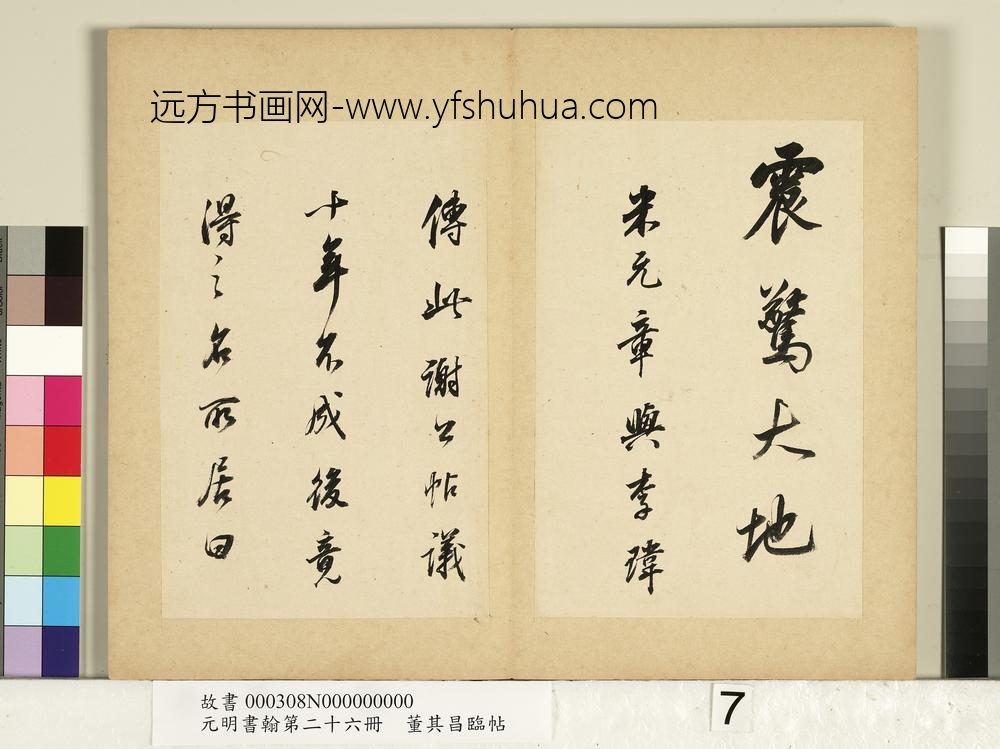 远方书画网-www.yfshuhua.com
震驚大地
米元章與李瑋
傳此謝公帖議
十年不成後竟
得之名所居曰
故書 000308N000000000
元明書翰第二十六冊 董其昌臨帖
7